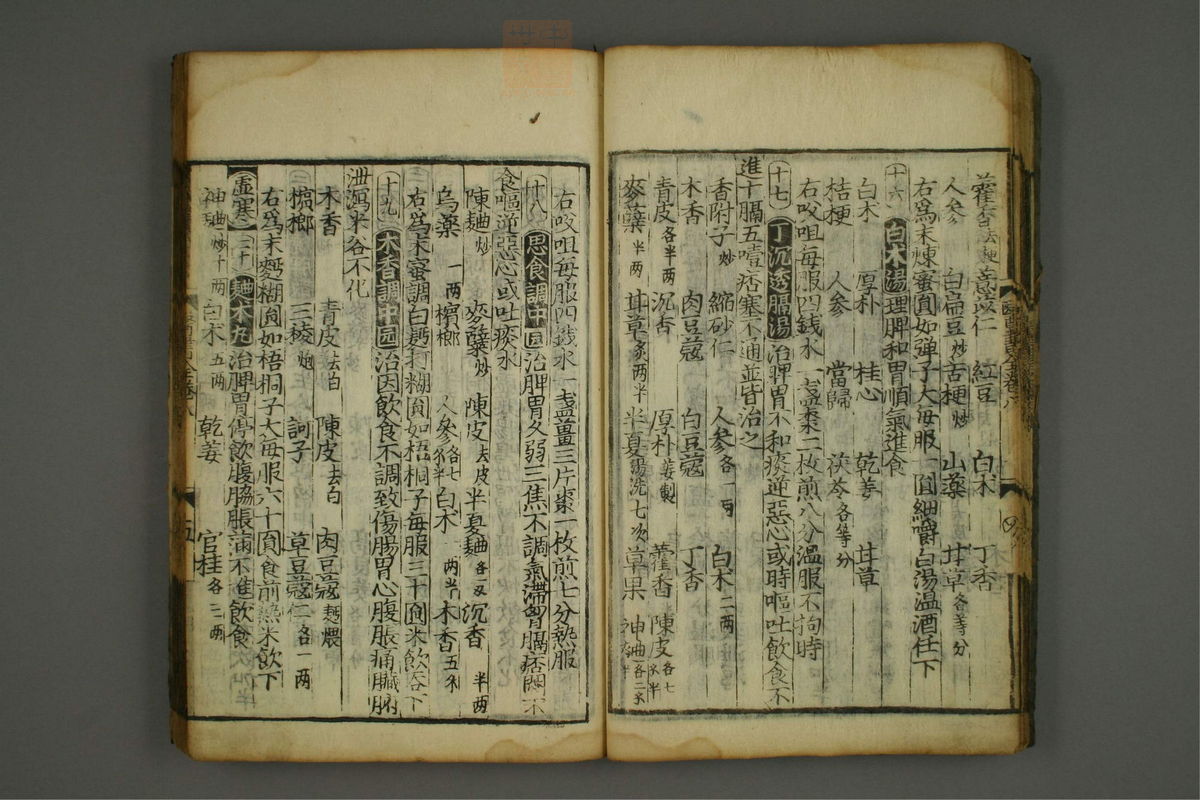 藿香去梗 薏苡仁 紅豆 白朮 丁香
人參 白扁豆炒 吉梗炒 山藥 甘草各等分
右為末煉蜜圓如彈子大每服一圓細嚼白湯温酒任下
十六 白朮湯 理脾和胃順氣進食
白朮 厚朴 桂心 乾姜 甘草
桔梗 人參 當歸 茯苓各等分
右㕮咀每服四錢水一盞棗二枚煎八分温服不拘時
十七 丁沉透膈湯 治脾胃不和痰逆惡心或時嘔吐飲食不
進十膈五噎痞塞不通並皆治之
香附子炒 縮砂仁 人參各一兩 白朮二兩
木香 肉豆蔻 白豆蔻 丁香
青皮各半兩 沉香 厚朴姜製 藿香 陳皮各七錢半
麥糵半兩 甘草炙兩半 半夏湯洗七次 草果 神曲各二錢
右㕮咀每服四錢水一盞薑三片棗一枚煎七分熱服
十八 思食調中圓 治脾胃久弱三焦不調氣滯胷膈痞悶不
食嘔逆惡心或吐痰水
陳麯炒 麥糵炒 陳皮去皮 半夏麯各一兩 沉香半兩
烏藥一兩 檳榔 人參各七錢半 白朮一兩半 木香五錢
右為末蜜調白麪打糊圓如梧桐子每服三十圓米飲吞下
十九 木香調中圓 治因飲食不調致傷腸胃心腹脹痛臟腑
泄瀉米谷不化
木香 青皮去白 陳皮去白 肉豆蔻麪煨
檳榔 三稜炮 訶子 草豆蔻仁各一兩
右為末麪糊圓如梧桐子大每服六十圓食前熱米飲下
虛寒 二十 麯朮丸 治脾胃停飲腹脇脹滿不進飲食
神麯炒十兩 白朮五兩 乾姜 官桂各三兩